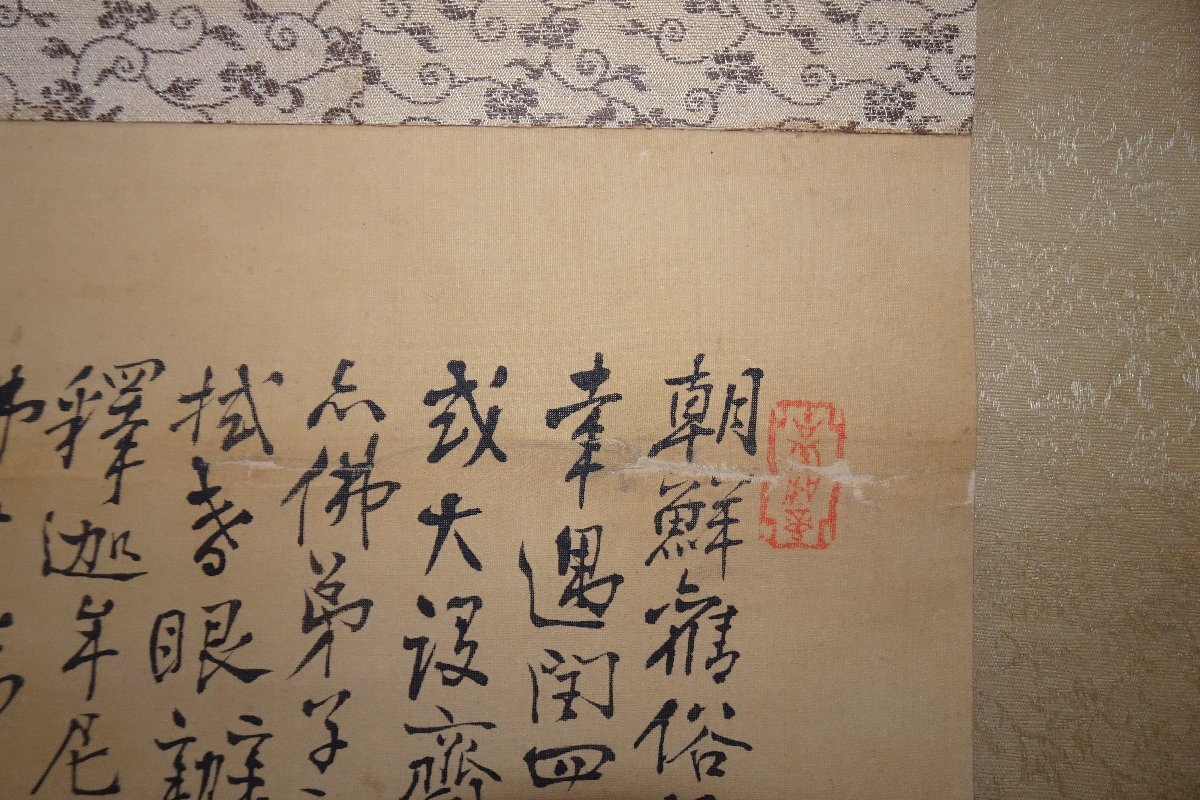 朝鮮舊俗
幸遇閏四
或大設齋
亦佛弟子
拭昏眼辦
釋迦牟尼